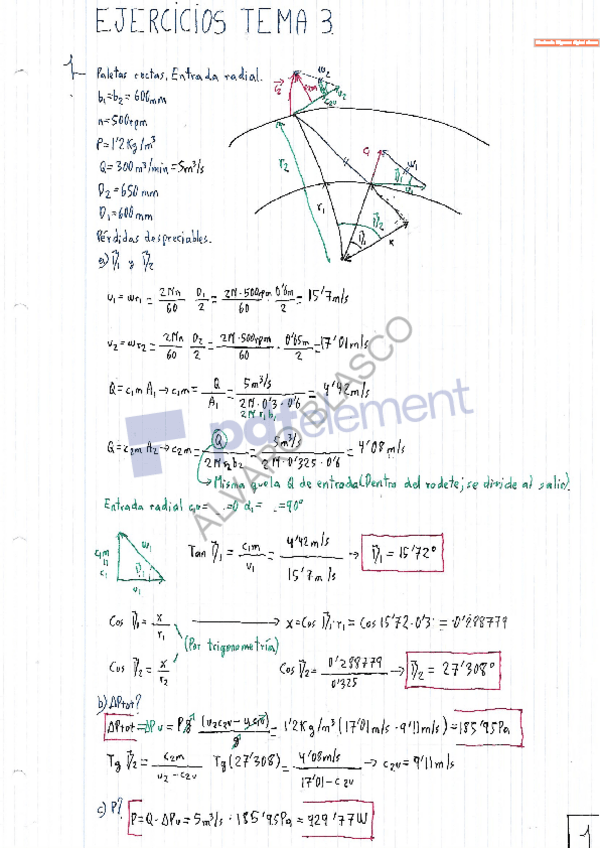 EJERCICIOS TEMA 3
1- Paletas rectas, Entrada radial.
b₁=b₂= 600mm
n=500rpm
ρ=1'2Kg/m³
Q=300m³/min=5m³/s
D₂=650mm
D₁=600mm
Pérdidas despreciables.
a) β₁ y β₂
r₂ r₁ β₂ β₁ x c₁ w₁ β₁ u₁ c₂ c₂m w₂ u₂ c₂u
u₁ = ωr₁ = 2πn/60 D₁/2 = 2π·500rpm/60 · 0'6m/2 = 15'7m/s
u₂ = ωr₂ = 2πn/60 D₂/2 = 2π·500rpm/60 · 0'65m/2 = 17'01m/s
Q=c₁m A₁ → c₁m = Q/A₁ = 5m³/s / 2π·0'3·0'6 = 4'42m/s
2π r₁ b₁
Q=c₂m A₂ → c₂m = Q/2πr₂b₂ = 5m³/s / 2π·0'325·0'6 = 4'08m/s
Misma que la Q de entrada (Dentro del rodete, se divide al salir).
Entrada radial c₁u = ...=0 α₁= ...=90°
c₁m = c₁ w₁ β₁ u₁
Tan β₁ = c₁m/u₁ = 4'42m/s / 15'7m/s → β₁ = 15'72°
Cos β₁ = x/r₁ → x = Cos β₁·r₁ = Cos 15'72·0'3 = 0'288779
(Por trigonometría)
Cos β₂ = x/r₂ Cos β₂ = 0'288779/0'325 → β₂ = 27'308°
b) ΔPtot?
ΔPtot = ΔPu = ρg (u₂c₂u - u₁c₁u)/g = 1'2Kg/m³ (17'01m/s · 9'11m/s) = 185'95Pa
Tg β₂ = c₂m/u₂-c₂u Tg(27'308) = 4'08m/s / 17'01-c₂u → c₂u = 9'11m/s
c) P?
P=Q·ΔPu = 5m³/s · 185'95Pa = 929'77W
1
pdfelement
ALVARO BLASCO